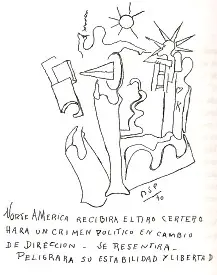 ASP
40
NORTE AMERICA RECIBIRA EL TIRO CERTERO
HARA UN CRIMEN POLITICO EN CAMBIO
DE DIRECCION - SE RESENTIRA -
PELIGRARA SU ESTABILIDAD Y LIBERTAD